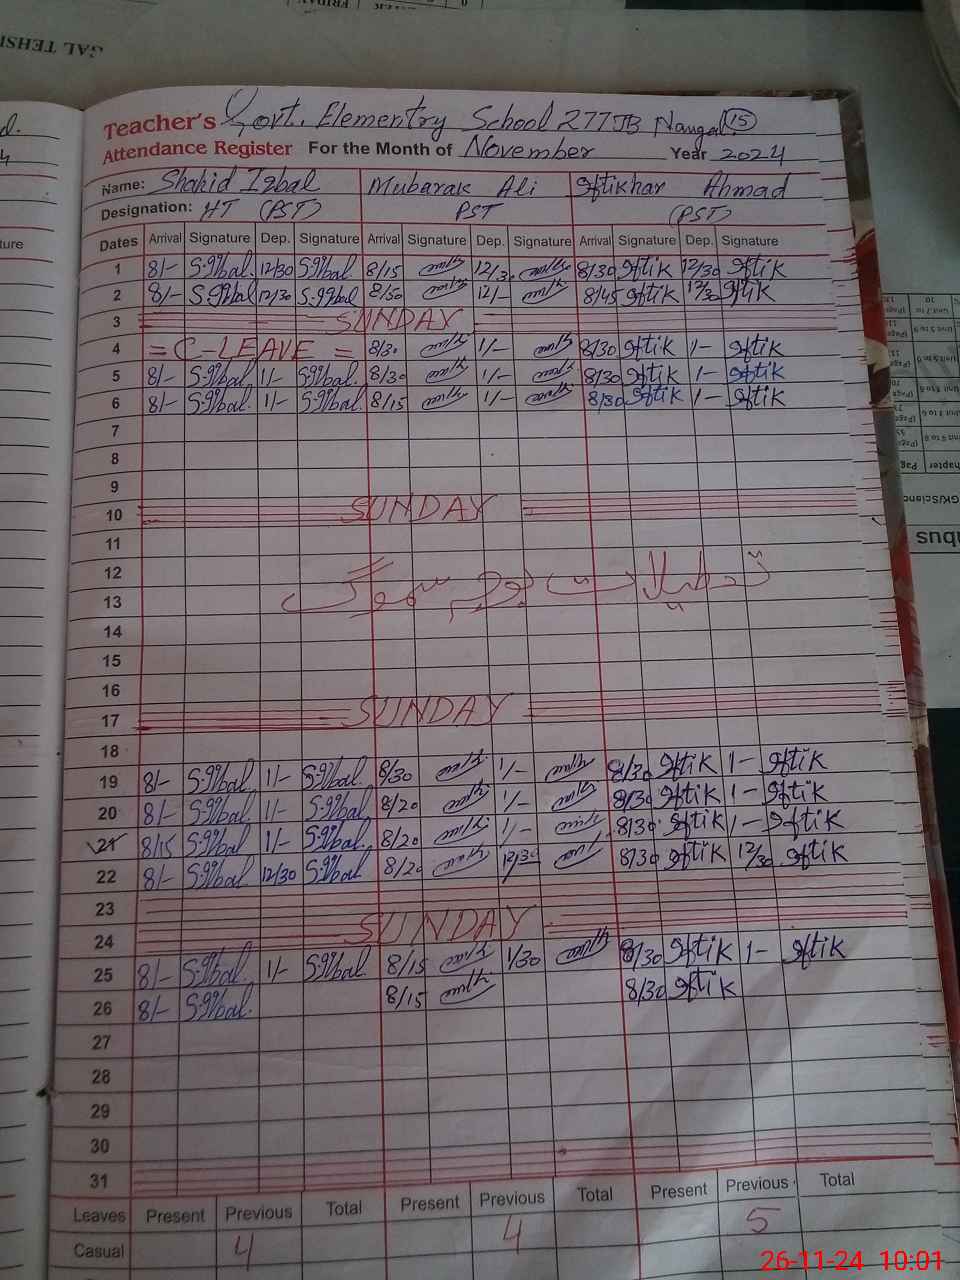 GAL TEHSI
Teacher's Govt. Elementry School 277JB Nangal. 15
Attendance Register For the Month of November Year 2024
Name: Shahid Iqbal Mubarak Ali Iftikhar Ahmad
Designation: HT (PST) PST (PST)
Dates Arrival Signature Dep. Signature Arrival Signature Dep. Signature Arrival Signature Dep. Signature
1 8/- S.Iqbal. 12/30 S.Iqbal 8/15 12/30 8/30 Iftik 12/30 Iftik
2 8/- S.Iqbal 12/30 S.Iqbal 8/50 12/- 8/45 Iftik 12/30 Iftik
3 SUNDAY
4 = C-LEAVE = 8/30 1/- 8/30 Iftik 1- Iftik
5 8/- S.Iqbal. 1/- S.Iqbal. 8/30 1/- 8/30 Iftik 1- Iftik
6 8/- S.Iqbal. 1/- S.Iqbal. 8/15 1/- 8/30 Iftik 1- Iftik
7
8
9
10 SUNDAY
11
12
تعطیلات بوجہ سموگ
13
14
15
16
17 SUNDAY
18
19 8/- S.Iqbal. 1/- S.Iqbal. 8/30 1/- 8/30 Iftik 1- Iftik
20 8/- S.Iqbal 1/- S.Iqbal 8/20 1/- 8/30 Iftik 1- Iftik
21 8/15 S.Iqbal 1/- S.Iqbal. 8/20 1/- 8/30 Iftik 1- Iftik
22 8/- S.Iqbal 12/30 S.Iqbal 8/20 12/30 8/30 Iftik 12/30 Iftik
23
24 SUNDAY
25 8/- S.Iqbal. 1/- S.Iqbal. 8/15 1/30 8/30 Iftik 1- Iftik
26 8/- S.Iqbal. 8/15 8/30 Iftik
27
28
29
30
31
Leaves Present Previous Total Present Previous Total Present Previous Total
Casual 4 4 5
26-11-24 10:01